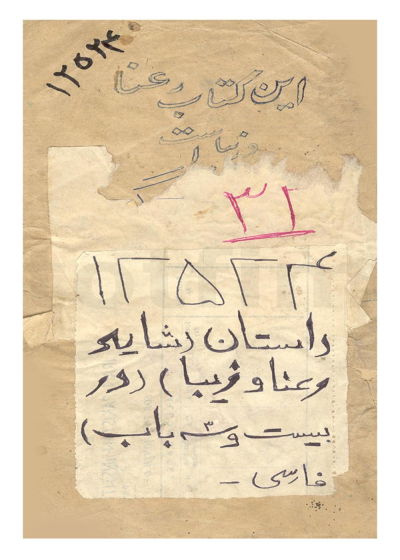 ۱۲۵۲۴
این کتاب رعنا
و زیباست
۳۱
۱۲۵۲۴
داستان (شاید
رعنا و زیبا) (در
بیست و سه باب)
فارسی -